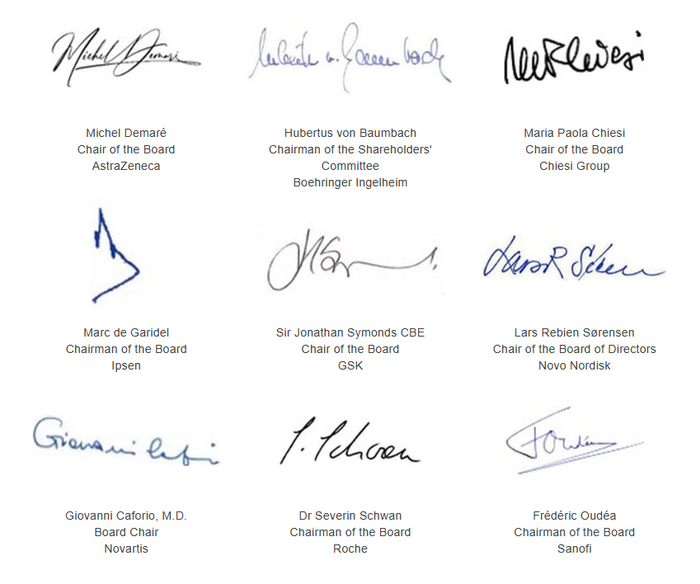 Michel Demaré
Chair of the Board
AstraZeneca
Hubertus von Baumbach
Chairman of the Shareholders'
Committee
Boehringer Ingelheim
Maria Paola Chiesi
Chair of the Board
Chiesi Group
Marc de Garidel
Chairman of the Board
Ipsen
Sir Jonathan Symonds CBE
Chair of the Board
GSK
Lars Rebien Sørensen
Chair of the Board of Directors
Novo Nordisk
Giovanni Caforio, M.D.
Board Chair
Novartis
Dr Severin Schwan
Chairman of the Board
Roche
Frédéric Oudéa
Chairman of the Board
Sanofi